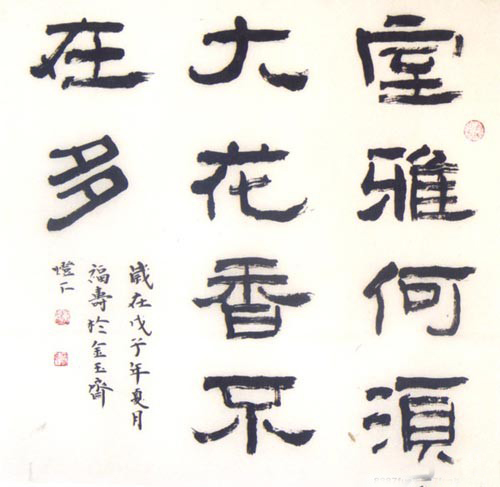 室雅何須
大花香不
在多
歲在戊子年夏月
福壽於金玉齋